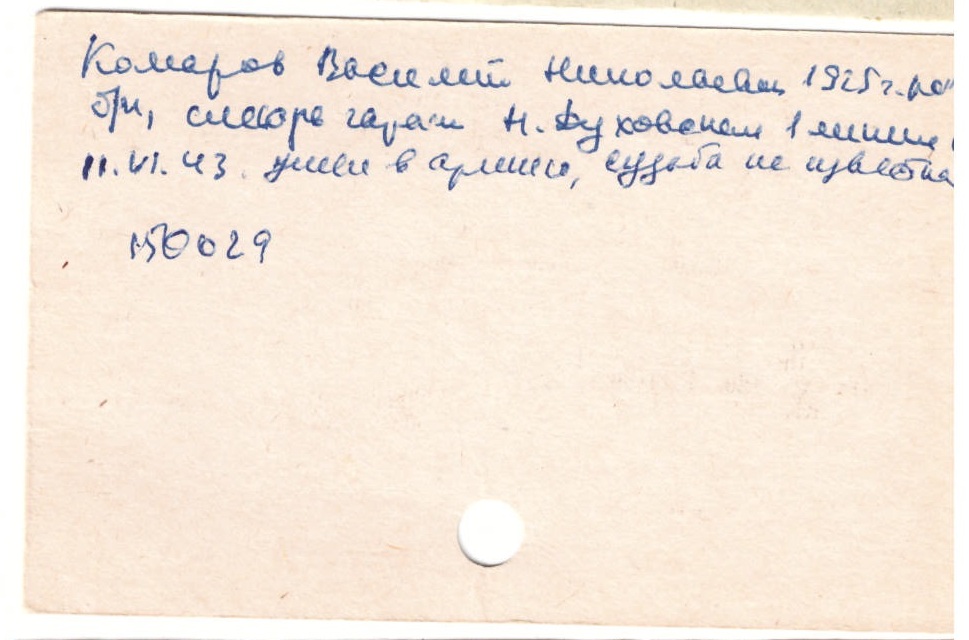 Комаров Василий Николаевич 1925 г. ро
б/п, слесарь гаража Н. Духовском 1 линии
11.VI.43. ушел в армию, судьба не известна